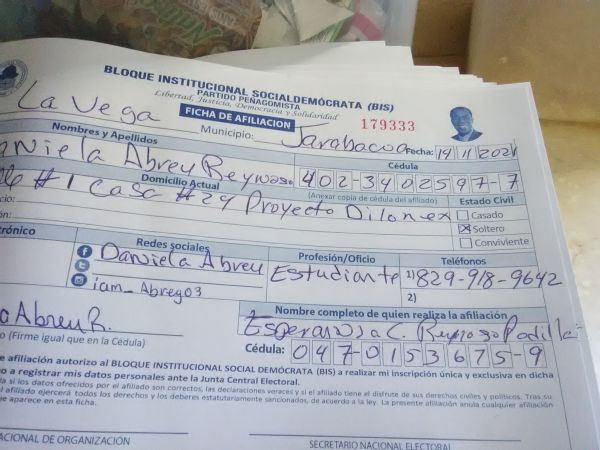 BLOQUE INSTITUCIONAL SOCIALDEMÓCRATA (BIS)
PARTIDO PEÑAGOMISTA
Libertad, Justicia, Democracia y Solidaridad
FICHA DE AFILIACION
179333
La Vega
Municipio: Jarabacoa
Fecha: 14 11 2021
Nombres y Apellidos
Cédula
Daniela Abreu Reynoso
402-3402597-7
Domicilio Actual
(Anexar copia de cédula del afiliado)
Estado Civil
#1 Casa #24 Proyecto Dilonex
Casado
Soltero
Conviviente
Redes sociales
Profesión/Oficio
Teléfonos
Daniela Abreu
Estudiante
1) 829-918-9642
iam_Abreg03
2)
Abreu R.
Nombre completo de quien realiza la afiliación
Esperanza C. Reynoso Padilla
(Firme igual que en la Cédula)
Cédula: 047-0153675-9
afiliación autorizo al BLOQUE INSTITUCIONAL SOCIAL DEMÓCRATA (BIS) a realizar mi inscripción única y exclusiva en dicha
o a registrar mis datos personales ante la Junta Central Electoral.
si los datos ofrecidos por el afiliado son correctos, las declaraciones veraces y si el afiliado tiene el disfrute de sus derechos civiles y políticos. Tras su
afiliado ejercerá todos los derechos y los deberes estatutariamente sancionados, de acuerdo a la ley. La presente afiliación anula cualquier afiliación
e aparece en esta ficha.
ACIONAL DE ORGANIZACIÓN
SECRETARIO NACIONAL ELECTORAL